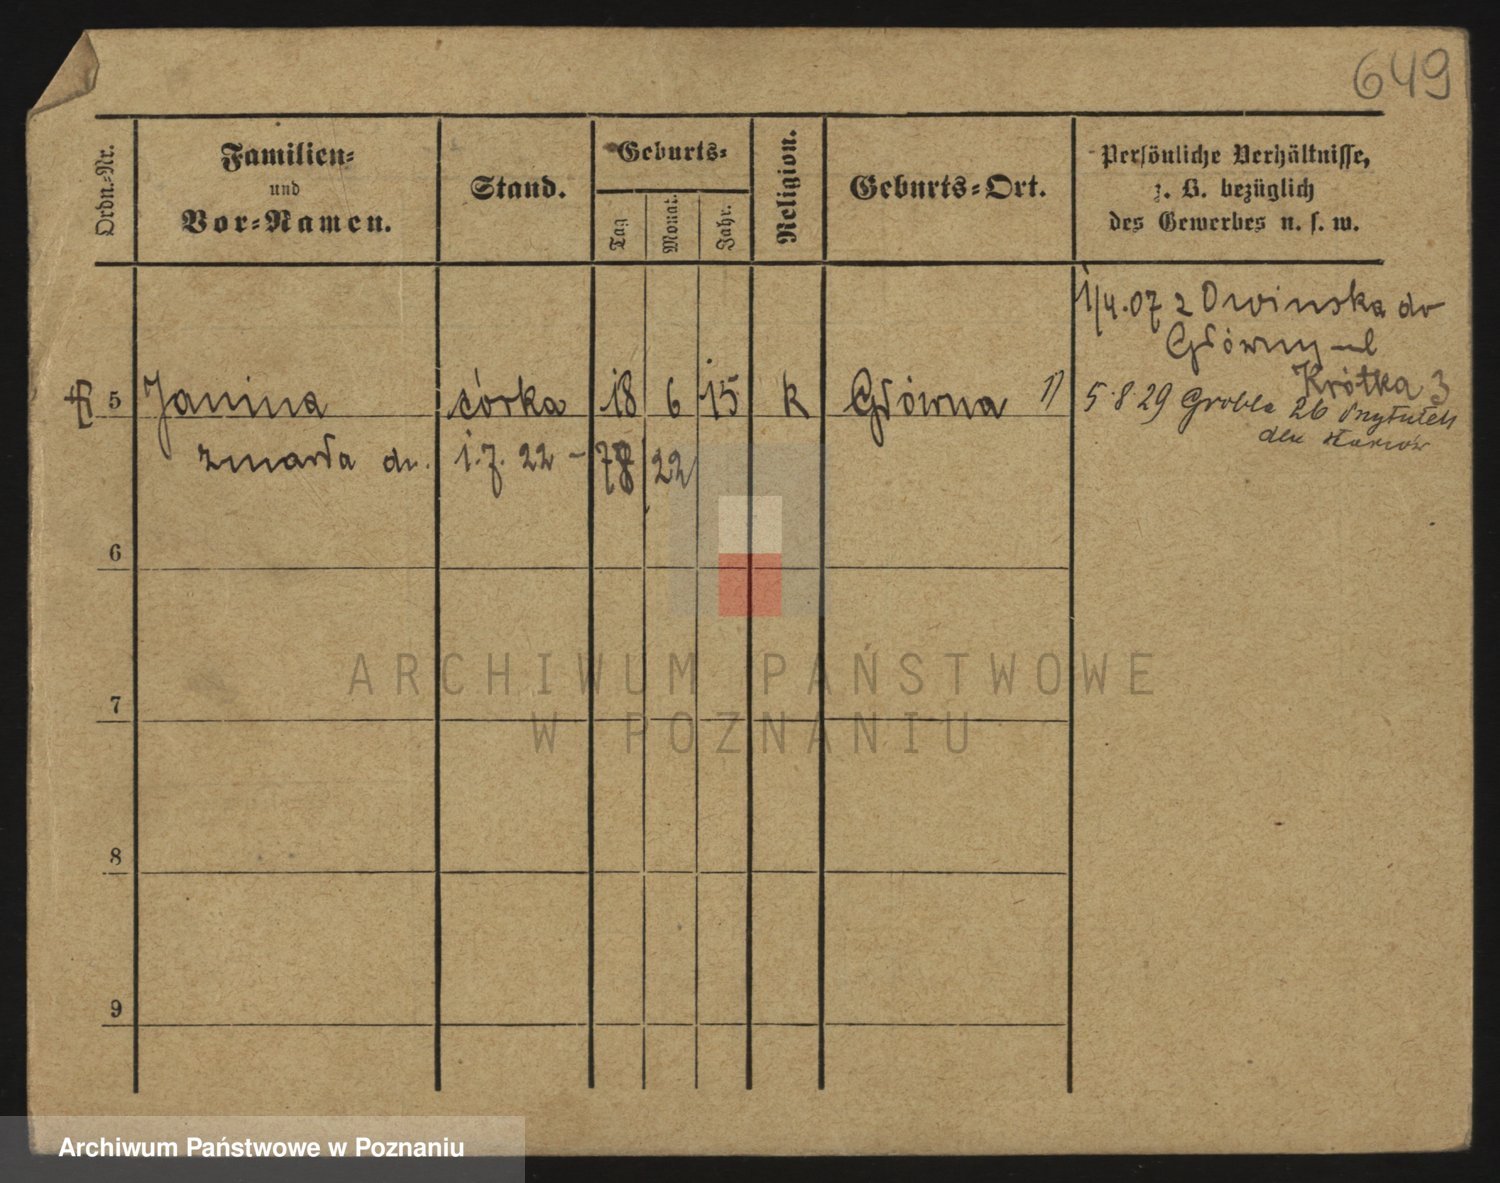 649
Ordn.-Nr.
Familien-
und
Vor-Namen.
Stand.
Geburts-
Tag
Monat.
Jahr.
Religion.
Geburts-Ort.
Persönliche Verhältnisse,
z. B. bezüglich
des Gewerbes u. s. w.
1/4.07 z Owinska do
Główny ul
Krótka 3
5 Janina córka 18 6 15 k Główna 1) 5.8 29 Grobla 26 Przytułek
dla starców
zmarła dn. 1.7.22 - 22
6
7
8
9
ARCHIWUM PAŃSTWOWE
W POZNANIU
Archiwum Państwowe w Poznaniu